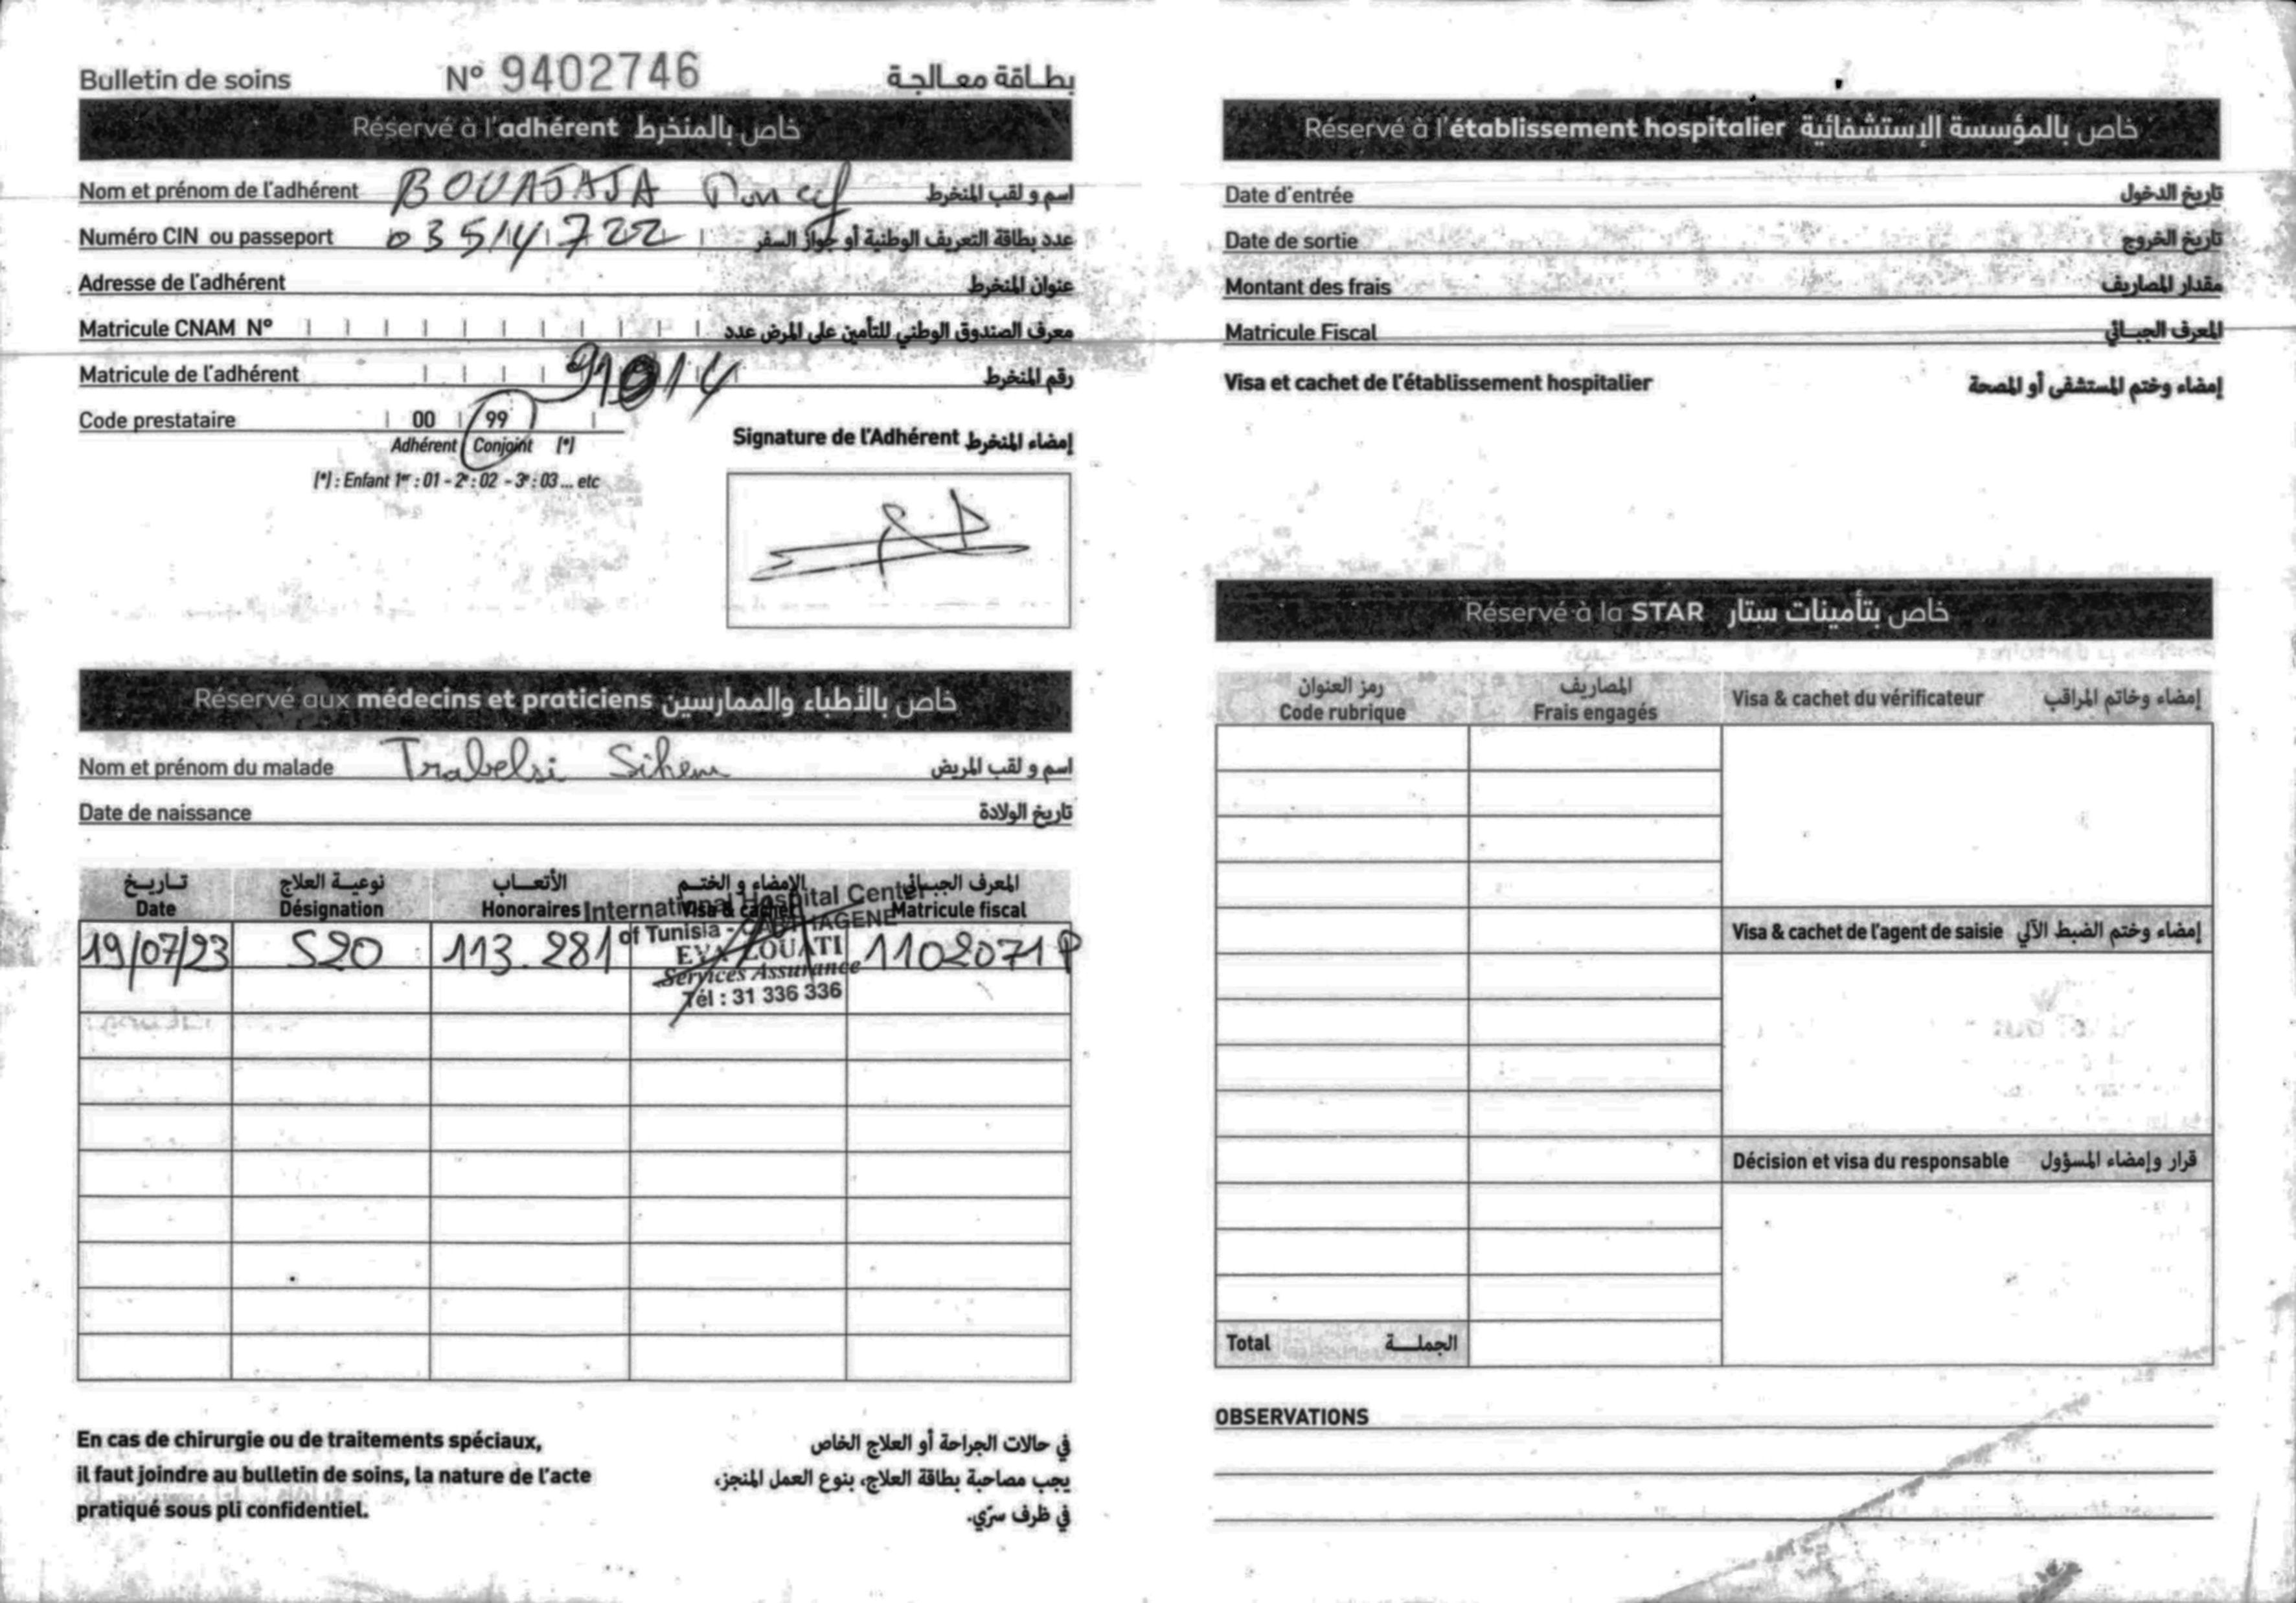 Bulletin de soins N° 9402746 بطاقة معالجة
Réservé à l'adhérent خاص بالمنخرط
Nom et prénom de l'adhérent BOUAJAJA Moncef اسم و لقب المنخرط
Numéro CIN ou passeport 03514722 عدد بطاقة التعريف الوطنية أو جواز السفر
Adresse de l'adhérent عنوان المنخرط
Matricule CNAM N° معرف الصندوق الوطني للتأمين على المرض عدد
Matricule de l'adhérent 91014 رقم المنخرط
Code prestataire 00 99
Adhérent Conjoint (*)
(*) : Enfant 1er : 01 - 2e : 02 - 3e : 03 ... etc
Signature de l'Adhérent إمضاء المنخرط
Réservé aux médecins et praticiens خاص بالأطباء والممارسين
Nom et prénom du malade Trabelsi Sihem اسم و لقب المريض
Date de naissance تاريخ الولادة
تاريخ نوعية العلاج الأتعاب الإمضاء و الختم المعرف الجبائي
Date Désignation Honoraires Visa & cachet Matricule fiscal
19/07/23 S20 113.281 1102071P
International Hospital Center
of Tunisia - CARTHAGENE
EVA ZOUATI
Services Assurance
Tél : 31 336 336
En cas de chirurgie ou de traitements spéciaux,
il faut joindre au bulletin de soins, la nature de l'acte
pratiqué sous pli confidentiel.
في حالات الجراحة أو العلاج الخاص
يجب مصاحبة بطاقة العلاج، بنوع العمل المنجز،
في ظرف سرّي.
Réservé à l'établissement hospitalier خاص بالمؤسسة الإستشفائية
Date d'entrée تاريخ الدخول
Date de sortie تاريخ الخروج
Montant des frais مقدار المصاريف
Matricule Fiscal المعرف الجبائي
Visa et cachet de l'établissement hospitalier إمضاء وختم المستشفى أو المصحة
Réservé à la STAR خاص بتأمينات ستار
رمز العنوان المصاريف
Code rubrique Frais engagés Visa & cachet du vérificateur إمضاء وخاتم المراقب
Visa & cachet de l'agent de saisie إمضاء وختم الضبط الآلي
Décision et visa du responsable قرار وإمضاء المسؤول
Total الجملة
OBSERVATIONS